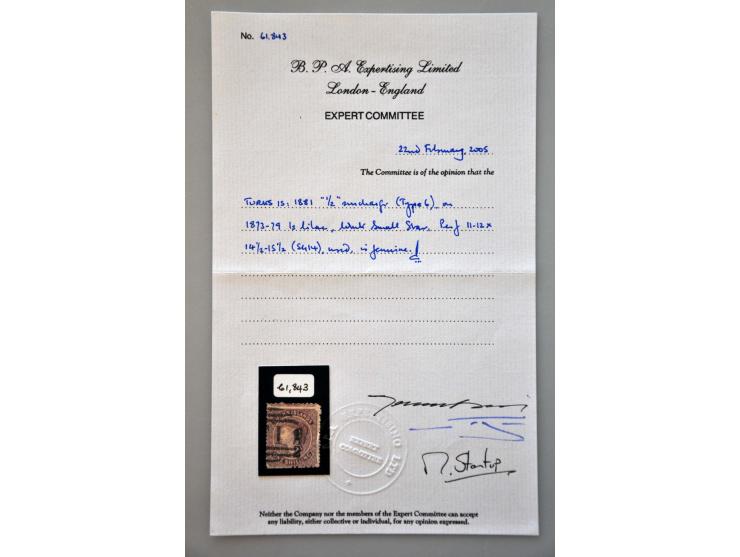 No. 61,843
B. P. A. Expertising Limited
London - England
EXPERT COMMITTEE
22nd February, 2005
The Committee is of the opinion that the
TURKS IS: 1881 "½" surcharge (Type 6) on
1873-79 1s lilac, Wmk Small Star. Perf 11-12 x
14½-15½ (SG14), used, is genuine.
61,843
EXPERTISING LTD
EXPERT
COMMITTEE
M. Startup
Neither the Company nor the members of the Expert Committee can accept
any liability, either collective or individual, for any opinion expressed.